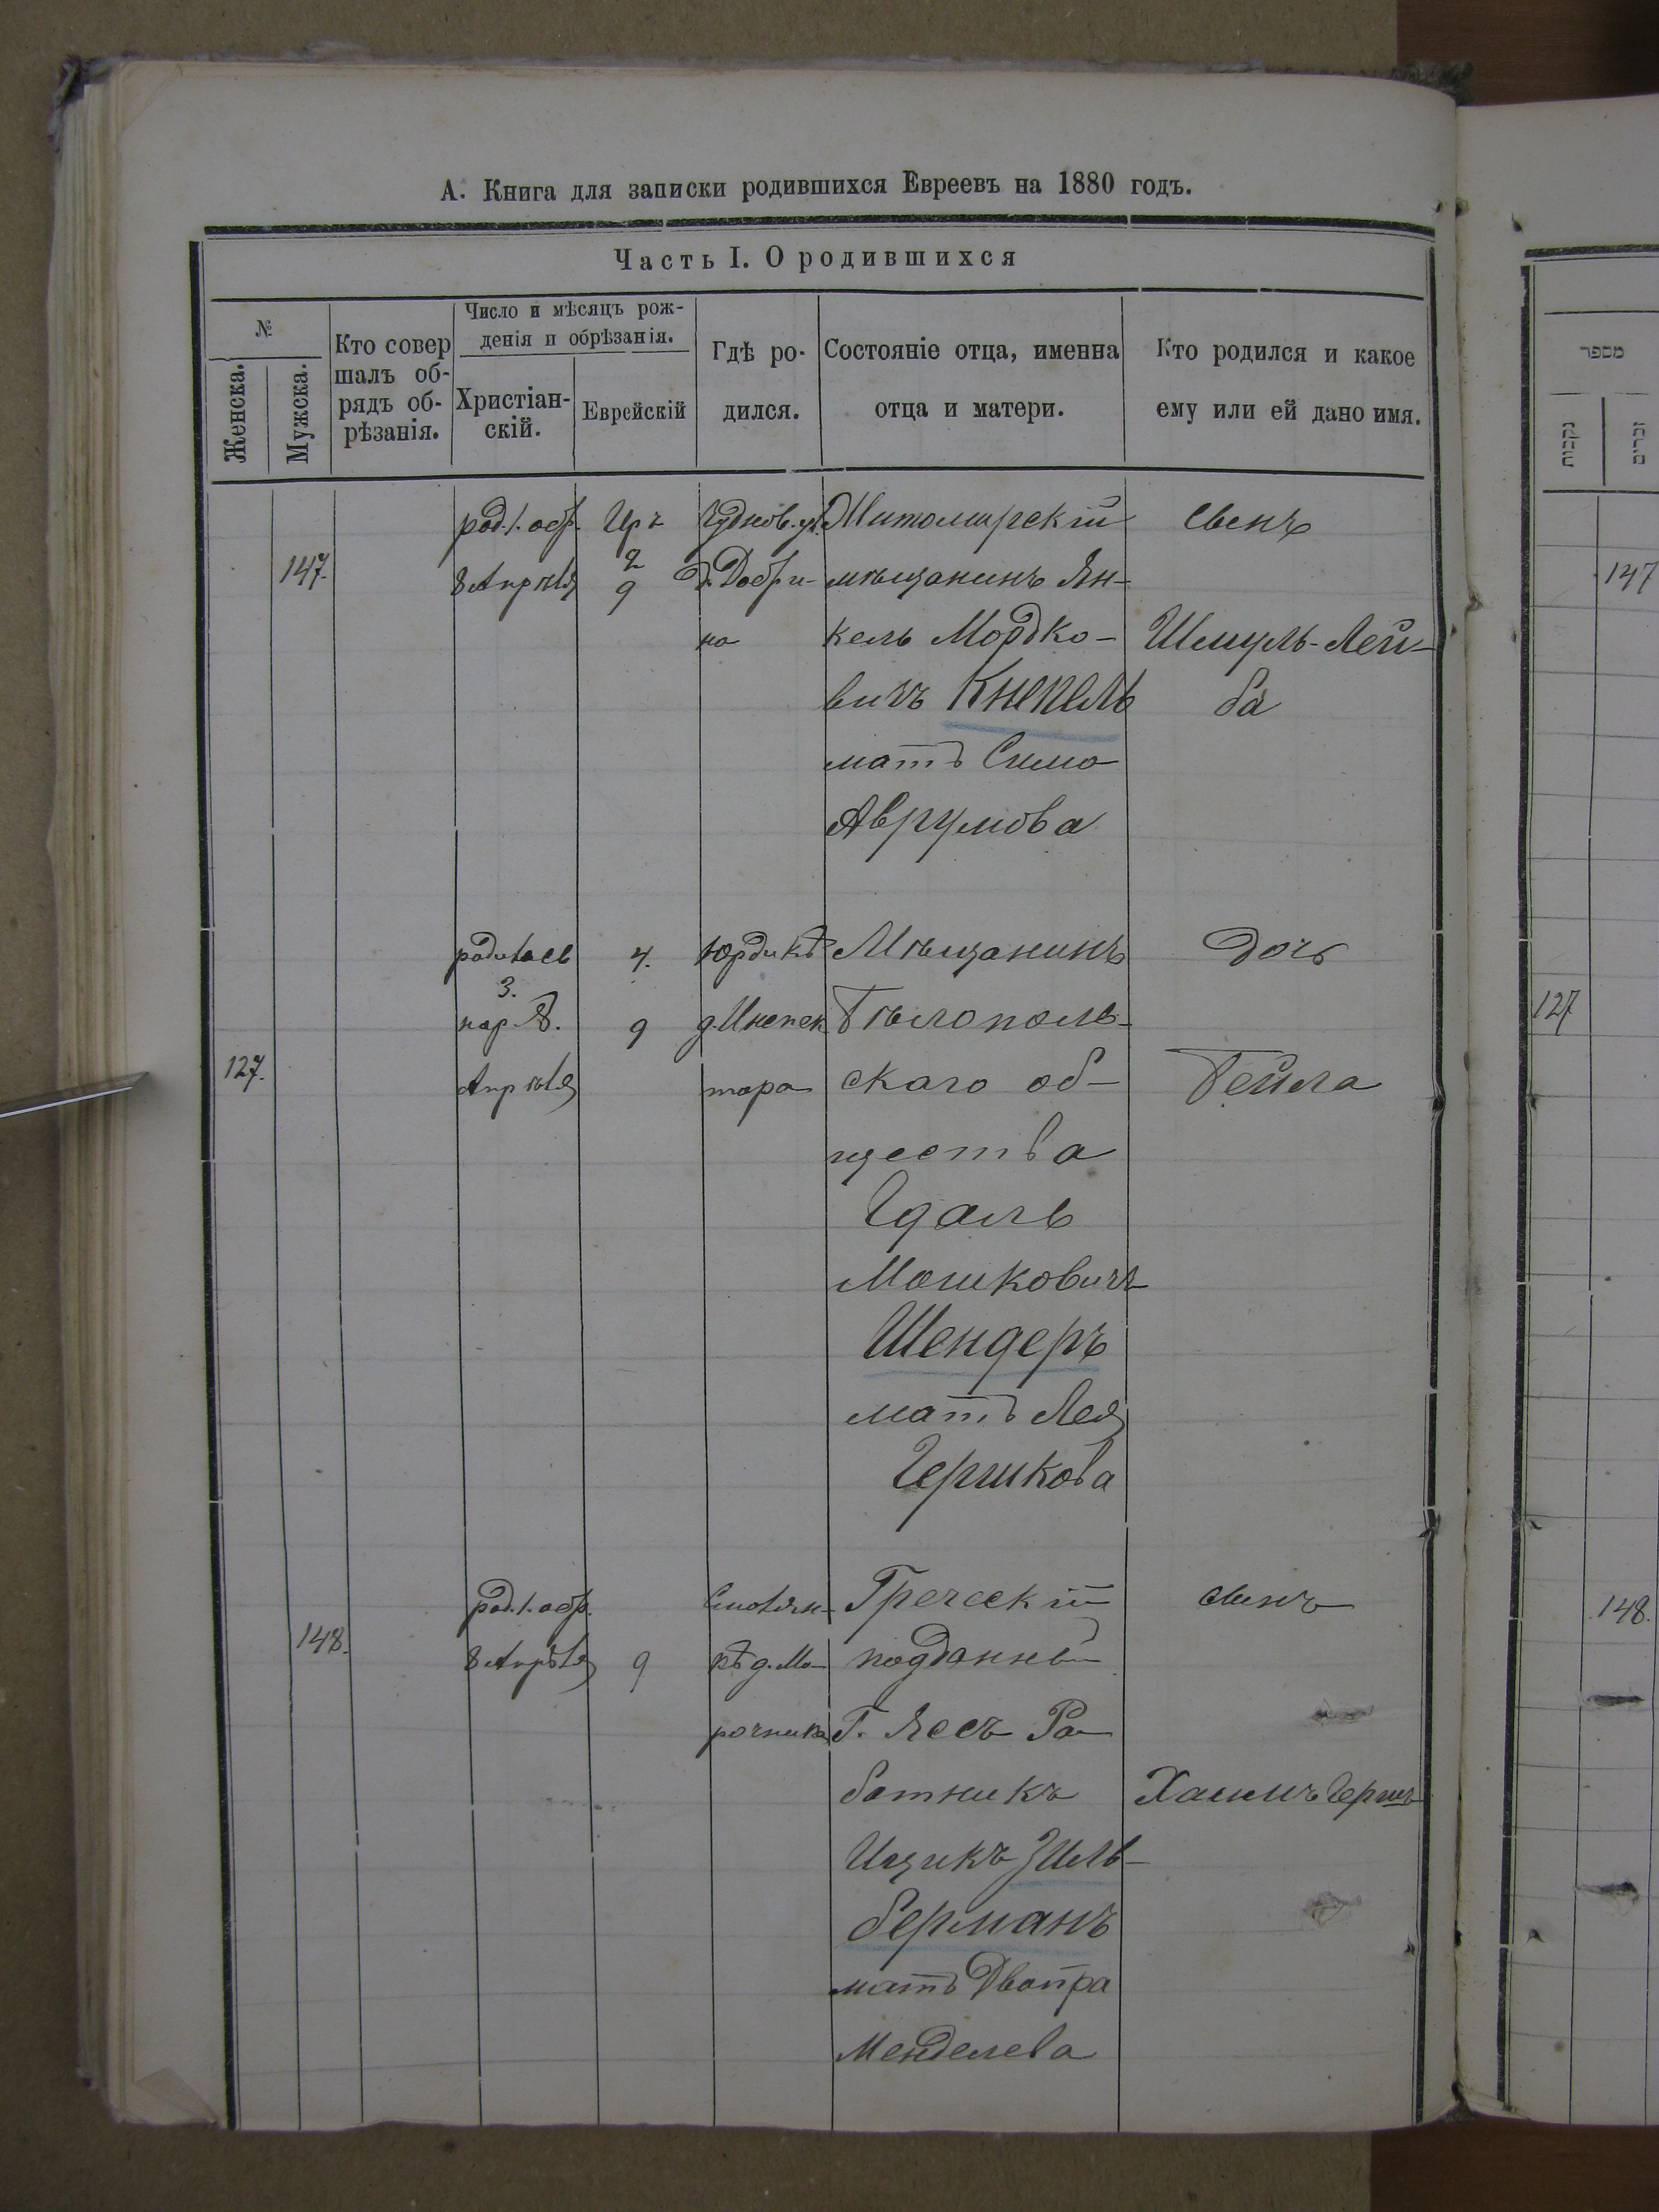 А. Книга для записки родившихся Евреевъ на 1880 годъ.
Часть I. О родившихся
№
Женска.
Мужска.
Кто совер
шалъ об-
рядъ об-
рѣзанія.
Число и мѣсяцъ рож-
денія и обрѣзанія.
Христіан-
скій.
Еврейскій
Гдѣ ро-
дился.
Состояніе отца, именна
отца и матери.
Кто родился и какое
ему или ей дано имя.
147.
род. 1. обр.
8 Апрѣля
Иръ
2
9
Чуднов. ул.
д. Добри-
на
Житомирскій
мѣщанинъ Ян-
кель Мордко-
вичъ Кнепель
мать Сима
Аврумова
сынъ
Шмуль-Лей-
ба
127.
родилась
3.
нар. 8.
Апрѣля
4.
9
д. Инспек
тора
Мѣщанинъ
Бѣлополь-
скаго об-
щества
Гдаль
Мошковичъ
Шендеръ
мать Лея
Гершкова
дочь
Бейла
148.
род. 1. обр.
8 Апрѣля
9
Смолян-
кѣ д. Мо-
рочника
Греческій
подданный
Г. Яссъ Ра-
ботникъ
Ицикъ Зиль-
берманъ
мать Двойра
Менделева
сынъ
Хаимъ Гершъ
מספר
נקבות
זכרים
147
127
148.